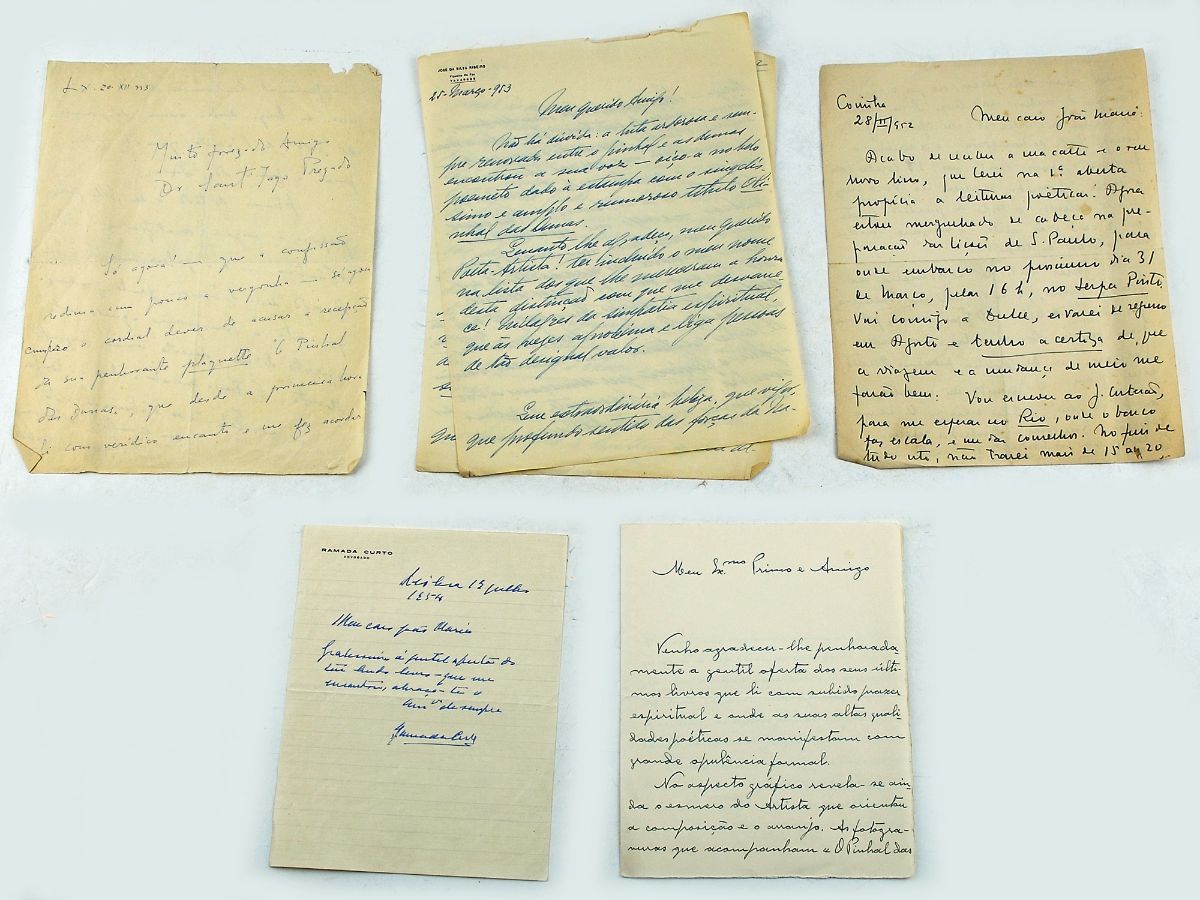 Lx. 20-XII-953
Muito Prezado Amigo
Dr. Sant'Iago Prezado
Só agora em que a confissão
redime um pouco a vergonha — só agora
cumpro o cordial dever de acusar a recepção
da sua penhorante plaquette "O Pinhal
das Dunas", que desde a primeira hora
li com verídico encanto e me fez acordar
JOSÉ DA SILVA RIBEIRO
Figueira da Foz
TAVAREDE
25-Março-953
Meu querido Amigo!
Não há dúvida: a luta ardorosa e sem-
pre renovada entre o pinhal e as dunas
encontrou a sua voz — oiço-a no belo
poemeto dado à estampa com o singelís-
simo e amplo e rumoroso título O Pi-
nhal das Dunas.
Quanto lhe agradeço, meu querido
Poeta-Artista! ter incluído o meu nome
na lista dos que lhe mereceram a honra
desta distinção com que me desvane-
ce! Milagres da simpatia espiritual,
que às vezes aproxima e liga pessoas
de tão desigual valor.
Que extraordinária beleza, que vigor,
que profundo sentido das forças da Na-
Coimbra
28/II/952
Meu caro João Mário:
Acabo de receber a sua carta e o seu
novo livro, que lerei na 1ª aberta
propícia a leituras poéticas. Agora
estou mergulhado de cabeça na pre-
paração das lições de S. Paulo, para
onde embarco no próximo dia 31
de Março, pelas 16 h, no Serpa Pinto.
Vai comigo a Dulce, estarei de regresso
em Agosto e tenho a certeza de que
a viagem e a mudança de meio me
farão bem. Vou escrever ao J. Cortesão,
para me esperar no Rio, onde o barco
faz escala, e me dar conselhos. No fim de
tudo isto, não trarei mais de 15 a 20
RAMADA CURTO
ADVOGADO
Lisboa 15 Julho
1954
Meu caro João Maria
Gratíssimo à gentil oferta do
teu lindo livro que me
encantou, abraça-te o
amº de sempre
Ramada Curto
Meu Ex.mo Primo e Amigo
Venho agradecer-lhe penhorada-
mente a gentil oferta dos seus últi-
mos livros que li com subido prazer
espiritual e onde as suas altas quali-
dades poéticas se manifestam com
grande opulência formal.
No aspecto gráfico revela-se ain-
da o esmero do Artista que orientou
a composição e o arranjo. As fotogra-
vuras que acompanham o O Pinhal das